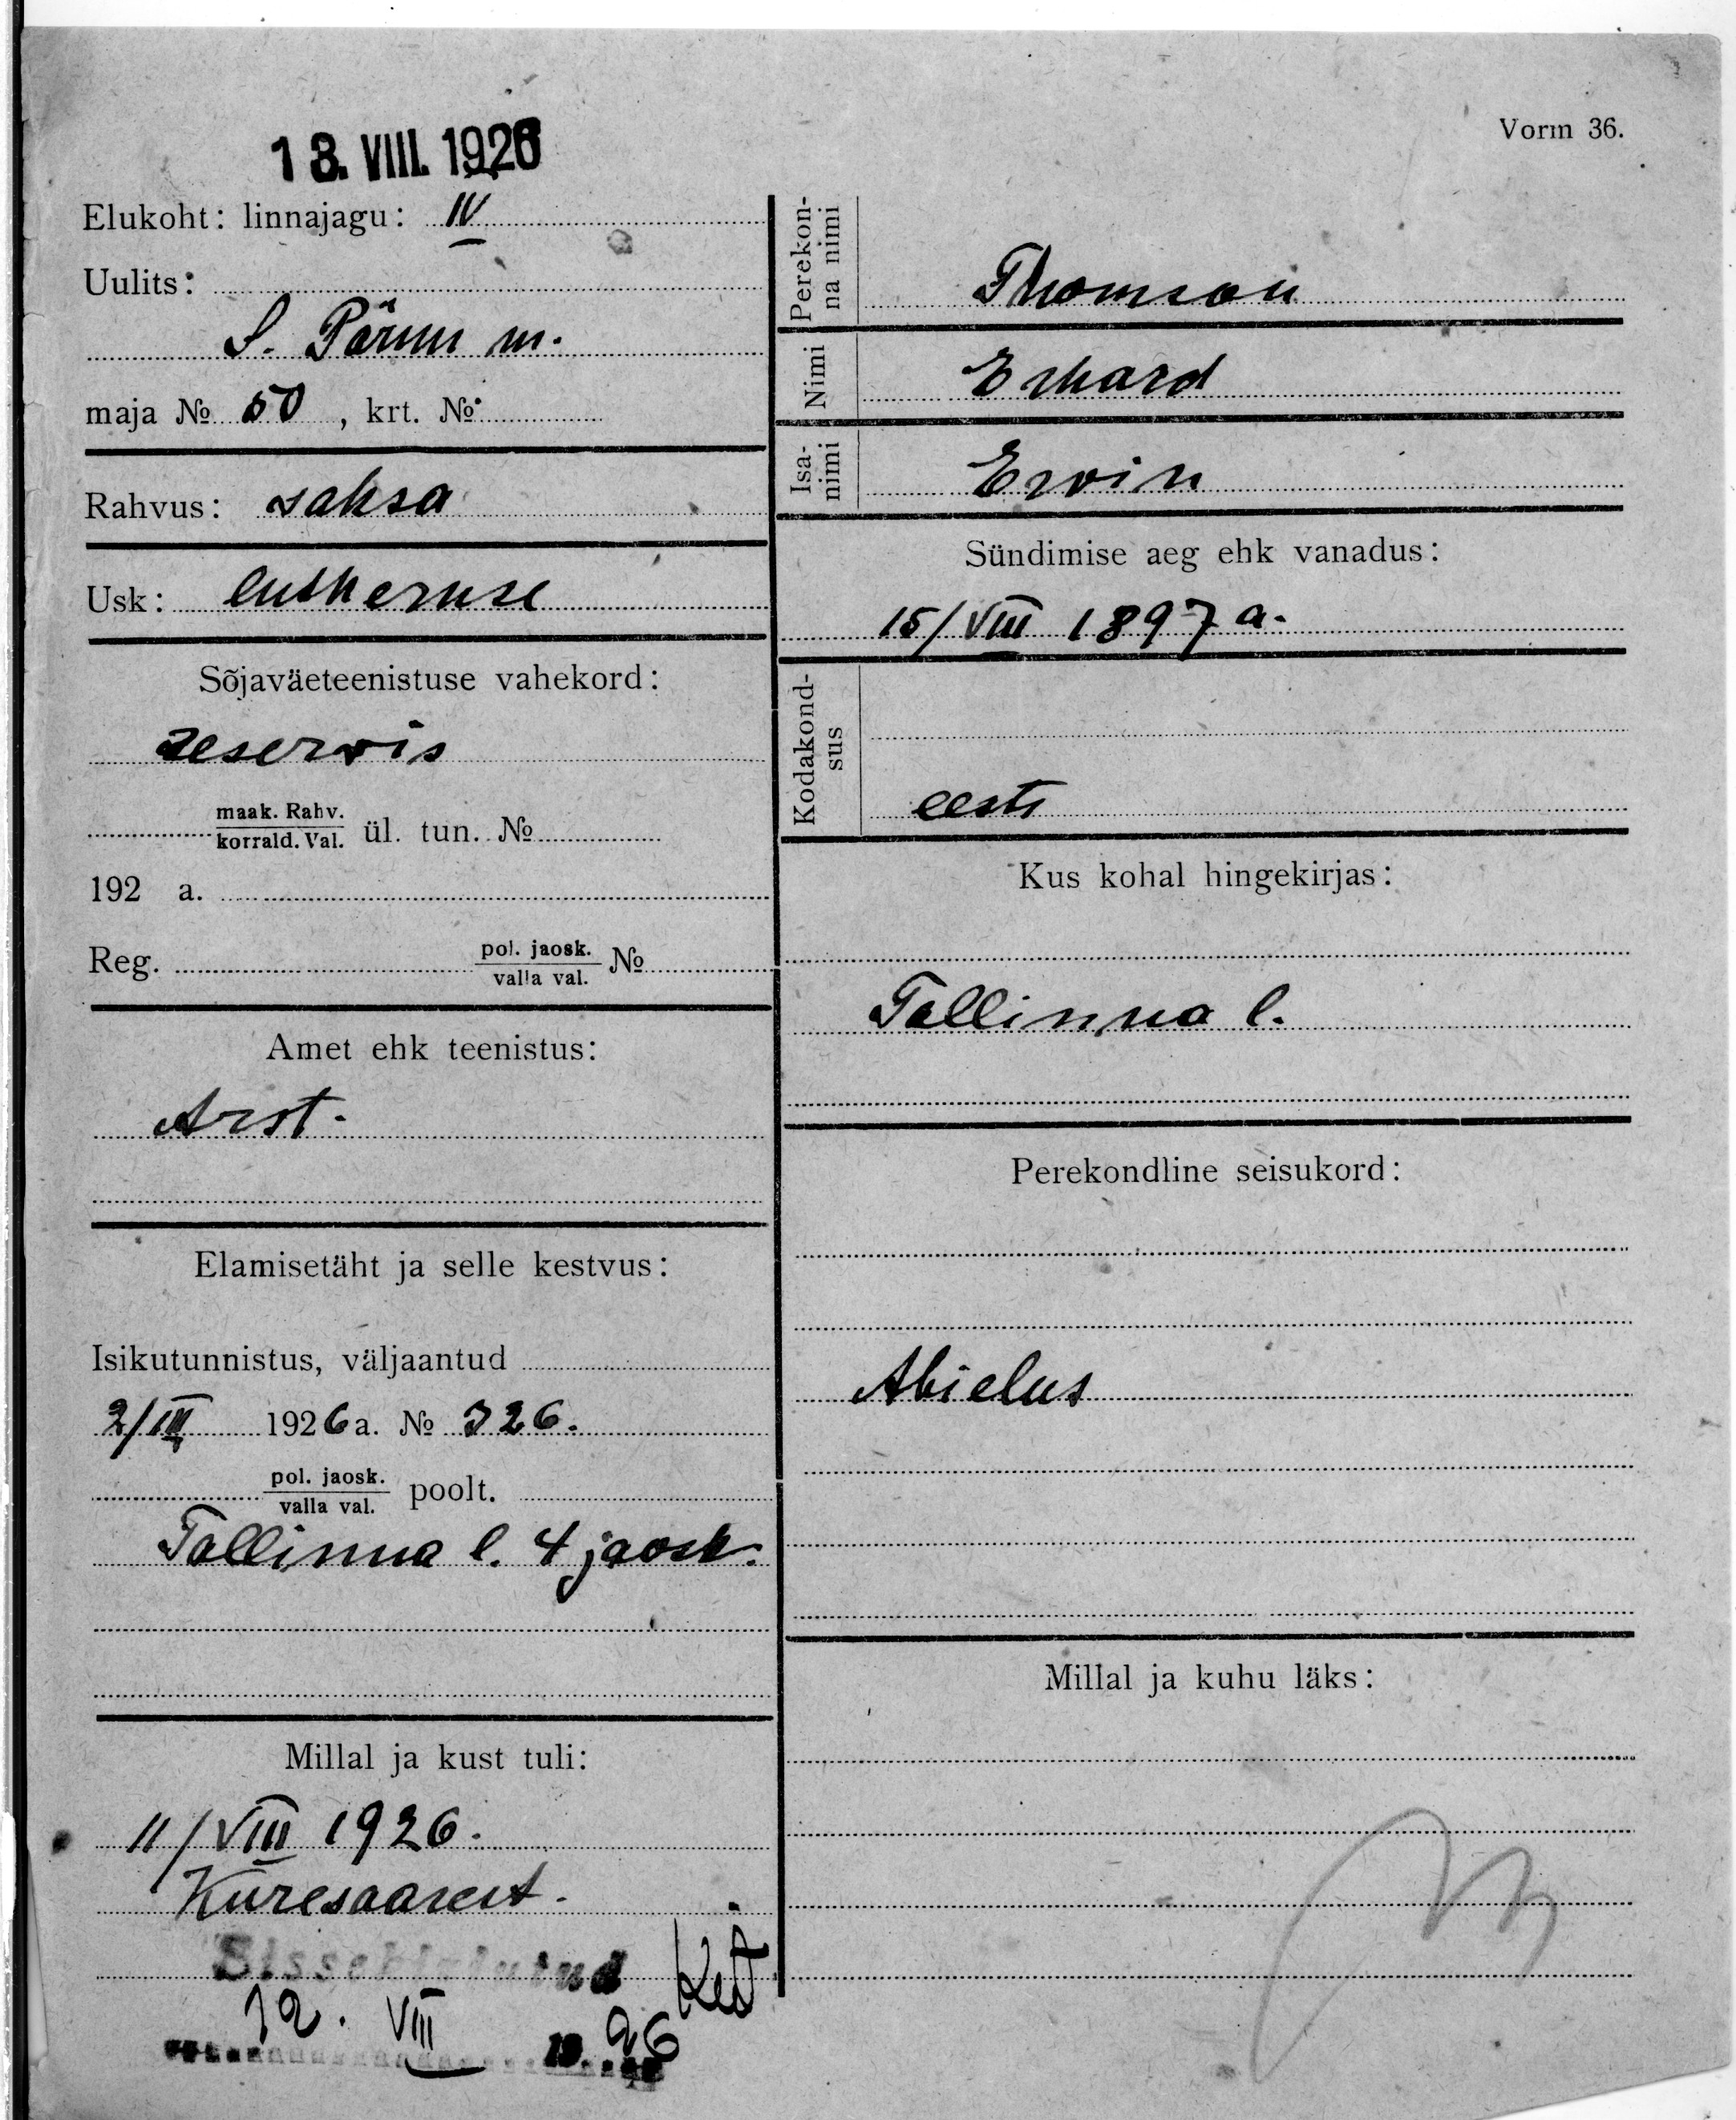 13. VIII. 1926
Vorm 36.
Elukoht: linnajagu: IV
Uulits:
S. Pärnu m.
maja № 50, krt. №
Rahvus: saksa
Usk: lutheruse
Sõjaväeteenistuse vahekord:
reservis
maak. Rahv.
korrald. Val. ül. tun. №
192 a.
Reg. pol. jaosk.
valla val. №
Amet ehk teenistus:
Arst.
Elamisetäht ja selle kestvus:
Isikutunnistus, väljaantud
2/III 1926 a. № 326.
pol. jaosk.
valla val. poolt.
Tallinna l. 4 jaosk.
Millal ja kust tuli:
11/VIII 1926.
Kuresaarest.
Sissekirjutud
12. VIII 1926
Perekon-
na nimi
Thomson
Nimi
Erhard
Isa-
nimi
Ervin
Sündimise aeg ehk vanadus:
15/VIII 1897 a.
Kodakond-
sus
eesti
Kus kohal hingekirjas:
Tallinna l.
Perekondline seisukord:
Abielus
Millal ja kuhu läks: